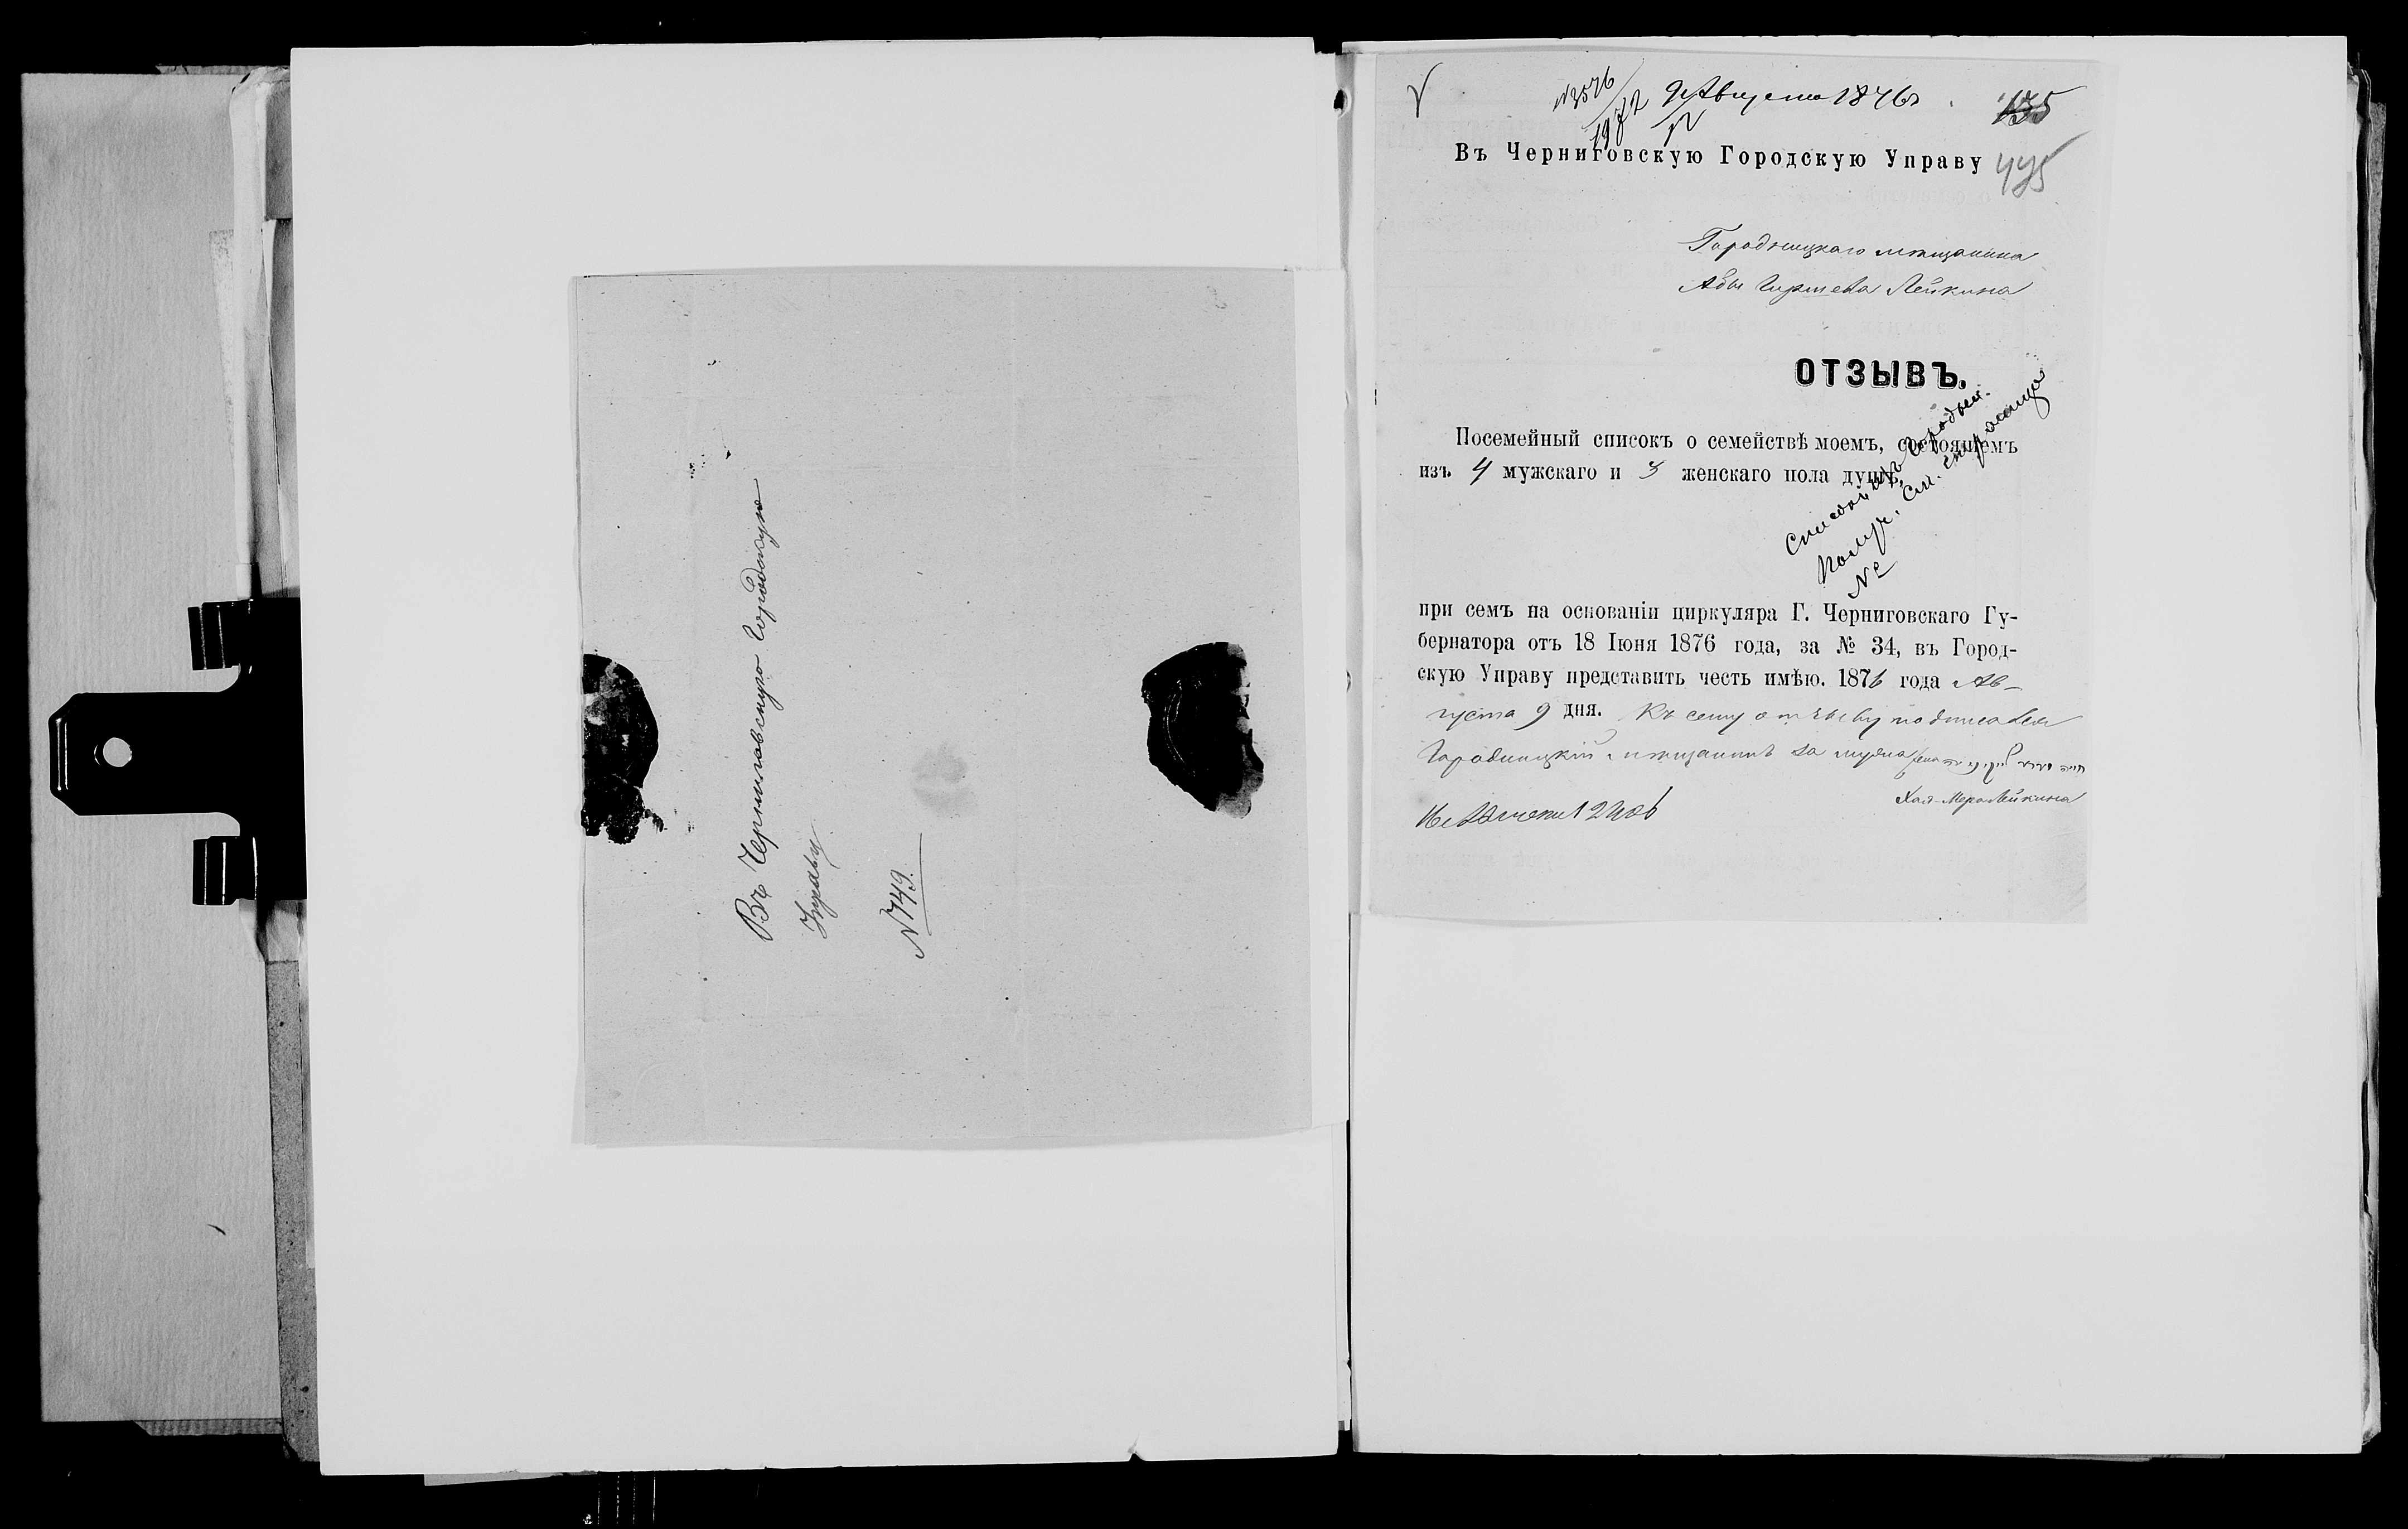 Въ Черниговскую Городскую
Управу
№ 749.
№ 3576
1972
9 Августа 1876 г.
135
Въ Черниговскую Городскую Управу
495
Городницкаго мѣщанина
Абы Гиршева Лейкина
ОТЗЫВЪ.
Посемейный списокъ о семействѣ моемъ, состоящемъ
изъ 4 мужскаго и 3 женскаго пола душъ,
Списокъ
См. страница
№
при семъ на основаніи циркуляра Г. Черниговскаго Гу-
бернатора отъ 18 Іюня 1876 года, за № 34, въ Город-
скую Управу представить честь имѣю. 1876 года Ав-
густа 9 дня. Къ сему отзыву подписался
Городницкій мѣщанинъ за мужа
Хая-Мера Лейкина